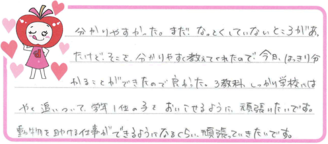 分かりやすかった。まだ なっとくしていないところがあ、
だけど、そこで、分かりやすく教えてくれたので 今日、はっきり分
かることができたので良かた。3教科、しっかり学校には
やく追いついて、学年1位の子を おいこせるように 頑張りたいです。
動物を助ける仕事ができるようになるぐらい、頑張っていきたいです。